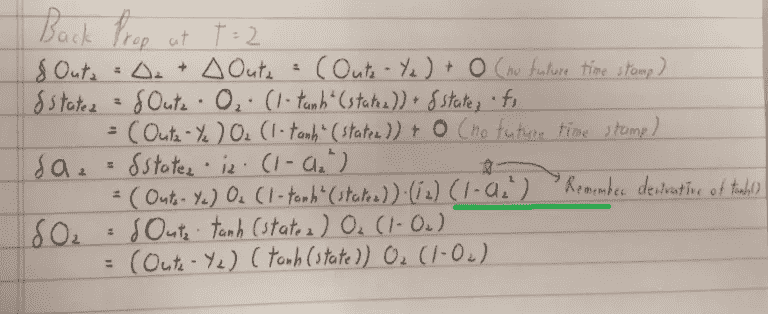 Back Prop at T=2
δOut₂ = Δ₂ + ΔOut₂ = (Out₂ - Y₂) + 0 (no future time stamp)
δstate₂ = δOut₂ · O₂ · (1-tanh²(state₂)) + δstate₃ · f₃
= (Out₂ - Y₂) O₂ (1-tanh²(state₂)) + 0 (no future time stamp)
δa₂ = δstate₂ · i₂ · (1 - a₂²)
= (Out₂ - Y₂) O₂ (1-tanh²(state₂)) · (i₂) (1 - a₂²) Remember derivative of tanh()
δO₂ = δOut₂ · tanh(state₂) O₂ (1 - O₂)
= (Out₂ - Y₂) (tanh(state)) O₂ (1 - O₂)